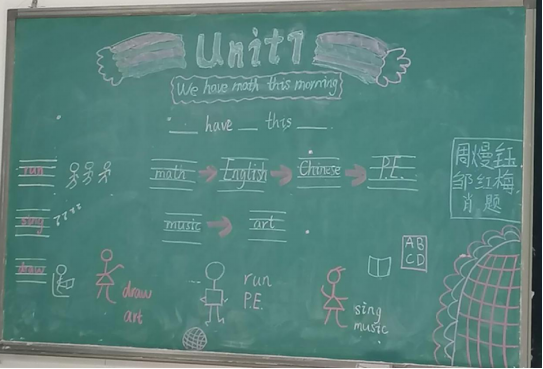 Unit1
We have math this morning
___ have ___ this ___
run
math → English → Chinese → P.E.
周熳钰
邹红梅
肖题
sing
music → art
draw
AB
CD
draw
art
run
P.E.
sing
music